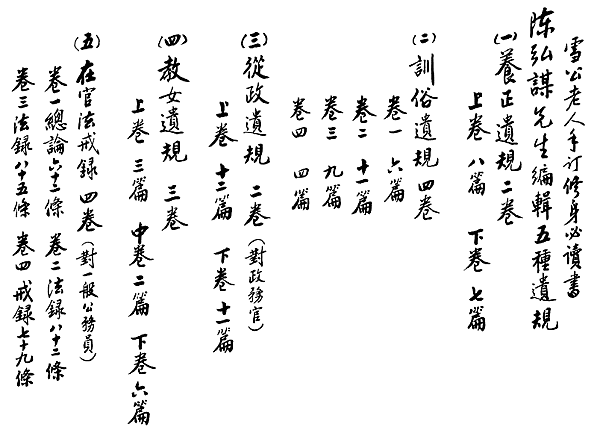 雪公老人手订修身必讀書
陈弘謀先生編輯五種遺規
(一)養正遺規二卷
上卷 八篇 下卷 七篇
(二)訓俗遺規四卷
卷一 六篇
卷二 十一篇
卷三 九篇
卷四 四篇
(三)從政遺規 二卷(對政務官)
上卷 十二篇 下卷 十一篇
(四)教女遺規 三卷
上卷 三篇 中卷二篇 下卷六篇
(五)在官法戒録 四卷(對一般公務員)
卷一總論六十二條 卷二法録八十二條
卷三法録八十五條 卷四戒録七十九條